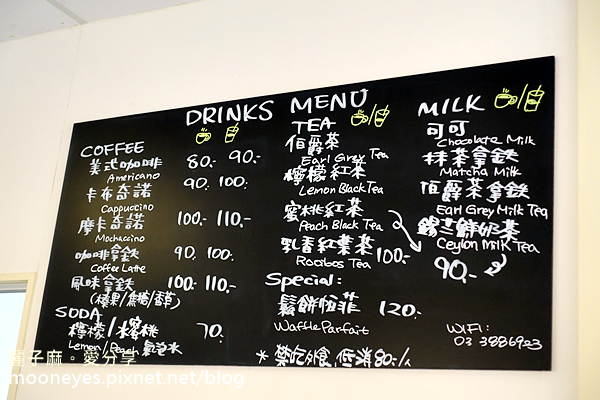 DRINKS MENU
COFFEE
美式咖啡 80.- 90.-
Americano
卡布奇諾 90. 100.
Cappuccino
摩卡奇諾 100.- 110.-
Mochaccino
咖啡拿鐵 90. 100.
Coffee Latte
風味拿鐵 100. 110.-
(榛果/焦糖/香草)
SODA
檸檬/水蜜桃 70.
Lemon/Peach 氣泡水
TEA
伯爵茶
Earl Grey Tea
檸檬紅茶
Lemon Black Tea
蜜桃紅茶
Peach Black Tea
乳香紅葉茶
Rooibos Tea
100.-
Special:
鬆餅伯菲 120.-
Waffle Parfait
* 禁吃外食, 低消80.-/人
MILK
可可
Chocolate Milk
抹茶拿鐵
Matcha Milk
伯爵茶拿鐵
Earl Grey Milk Tea
錫蘭鮮奶茶
Ceylon Milk Tea
90.-
WIFI:
03 3886903
子麻。愛分享
mooneyes.pixnet.net/blog